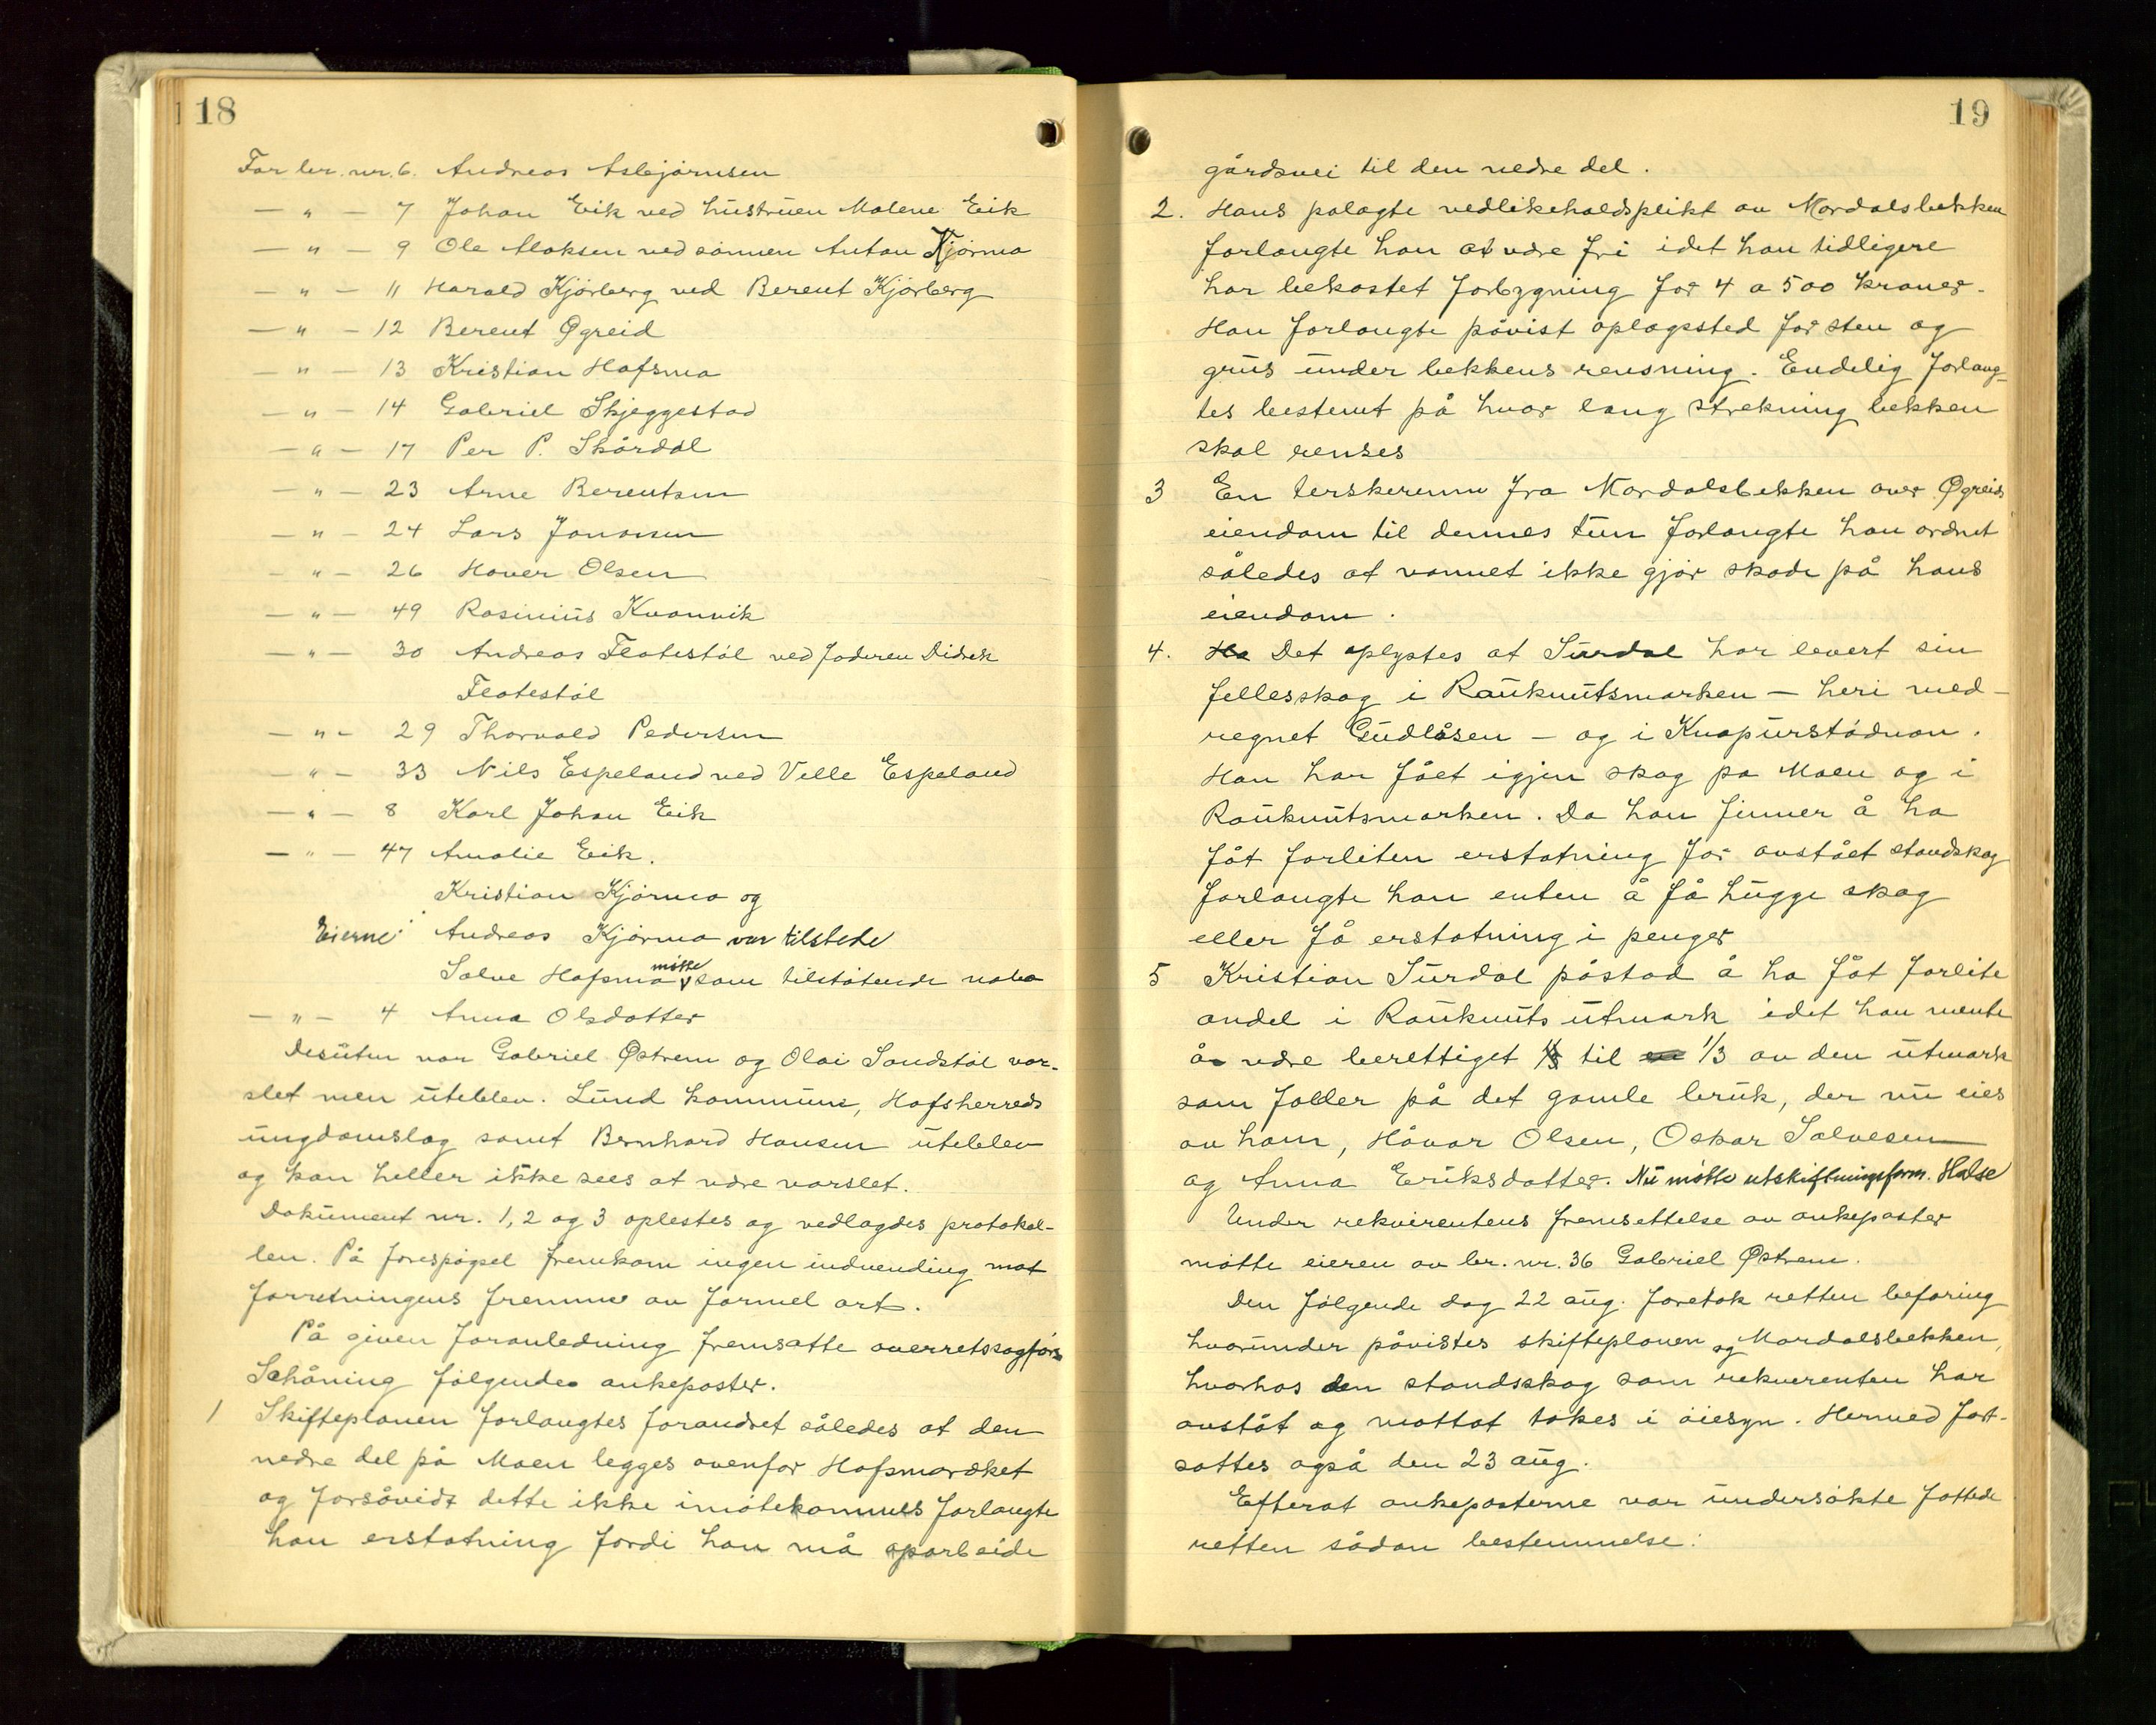 18
For br. nr. 6. Andreas Asbjørnsen
— " — 7 Johan Eik ved hustruen Malene Eik
— " — 9 Ole Aloksen ved sønnen Anton Kjørmo
— " — 11 Harald Kjørberg ved Berent Kjørberg
— " — 12 Berent Øgreid
— " — 13 Kristian Hafsmo
— " — 14 Gabriel Skjeggestad
— " — 17 Per P. Skårdal
— " — 23 Arne Berentsen
— " — 24 Lars Jonassen
— " — 26 Hover Olsen
— " — 49 Rasinius Kvanvik
— " — 30 Andreas Flatestøl ved faderen Didrek
Flatestøl
— " — 29 Thorvald Pedersen
— " — 33 Nils Espeland ved Velle Espeland
— " — 8 Karl Johan Eik
— " — 47 Amalie Eik.
Kristian Kjørmo og
Eierne: Andreas Kjørmo var tilstede
Salve Hafsmo møtte som tilstøtende nabo
— " — 4 Anna Olsdotter
Desuten var Gabriel Østrem og Olai Sandstøl var-
slet men uteblev. Lund kommune, Hafsherreds
ungdomslag samt Bernhard Hansen uteblev
og kan heller ikke sees at være varslet.
Dokument nr. 1, 2 og 3 oplestes og vedlagdes protokol-
len. På forespøgsel fremkom ingen indvending mot
forretningens fremme av formel art.
På given foranledning fremsatte overretssagfør
Schåning følgende ankeposter.
1 Skifteplanen forlangtes forandret således at den
nedre del på Moen legges ovenfor Hafsmordket
og forsåvidt dette ikke imøtekommes forlangte
han erstatning fordi han må oparbeide
19
gårdsvei til den nedre del.
2. Hans palagte vedlikeholdsplikt av Mordalsbekken
forlangte han at være fri idet han tidligere
har bekostet forbygning for 4 a 500 kroner.
Han forlangte påvist oplagssted for sten og
grus under bekkens rensning. Endelig forlang-
tes bestemt på hvor lang strekning bekken
skal renses
3 En terskerenne fra Mordalsbekken over Øgreids
eiendom til dennes tun forlangte han ordnet
således at vannet ikke gjør skade på hans
eiendom.
4. Ha Det oplystes at Surdal har levert sin
fellesskog i Rauknutsmarken — heri med-
regnet Gudlåsen — og i Knapurstødnan.
Han har fået igjen skog pa Moen og i
Rauknutsmarken. Da han finner å ha
fåt forliten erstatning for avstået standskog
forlangte han enten å få hugge skog
eller få erstatning i penger
5 Kristian Surdal påstod å ha fåt forlite
andel i Rauknuts utmark idet han mente
å være berettiget til en 1/3 av den utmark
som faller på det gamle bruk, der nu eies
av ham, Håvar Olsen, Oskar Salvesen
og Anna Eriksdatter. Nu møtte utskiftningsform. Halse
Under rekvirentens fremsettelse av ankeposter
møtte eieren av br. nr. 36 Gabriel Østrem.
Den følgende dag 22 aug. foretok retten befaring
hvorunder påvistes skifteplanen og Mordalsbekken,
hvorhos den standsskog som rekverenten har
avståt og mottat tokes i øiesyn. Hermed fort-
sattes også den 23 aug.
Efterat ankeposterne var undersøkte fattede
retten sådan bestemmelse: